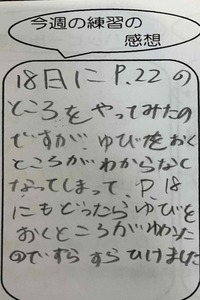 今週の練習の
感想
18日に P.22の
ところをやってみたの
ですが、ゆびをおく
ところがわからなく
なってしまって、P.18
にもどったらゆびを
おくところがわかった
のですらすらひけました